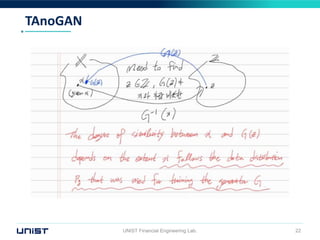 TAnoGAN
X
G(z)
Z
need to find
x G(z)
z ∈ Z, G(z)가
(given x)
z
G⁻¹(x)
The degree of similarity between x and G(z)
depends on the extent x follows the data distribution
Pg that was used for training the generator G
UNIST
UNIST Financial Engineering Lab.
22